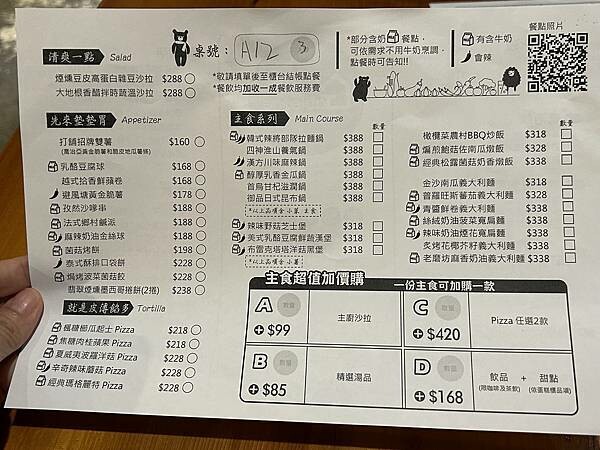 清爽一點 Salad
煙燻豆皮高蛋白雜豆沙拉 $288
大地根香醋拌時蔬溫沙拉 $288
桌號: A12 3
*敬請填單後至櫃台結帳點餐
*餐飲均加收一成餐飲服務費
*部分含奶 餐點,
可依需求不用牛奶烹調,
點餐時可告知!!
有含牛奶
會辣
餐點照片
先來墊墊胃 Appetizer
打鋪招牌雙薯 $160
(喬治亞黃金脆薯和脆皮地瓜薯條)
乳酪豆腐球 $168
越式拾香鮮蘋卷 $168
避風塘黃金脆薯 $178
孜然沙嗲串 $188
法式鄉村鹹派 $188
麻辣奶油金絲球 $188
菌菇烤餅 $198
泰式酥排口袋餅 $228
焗烤菠菜菌菇餃 $228
翡翠煙燻墨西哥捲餅(2捲) $238
就是皮薄餡多 Tortilla
楓糖櫛瓜起士 Pizza $218
焦糖肉桂蘋果 Pizza $218
夏威夷菠蘿洋菇 Pizza $228
辛奇辣味蘑菇 Pizza $228
經典瑪格麗特 Pizza $228
主食系列 Main Course
數量
韓式辣將部隊拉麵鍋 $388
四神淮山養氣鍋 $388
漢方川味麻辣鍋 $388
醇厚乳香金瓜鍋 $388
首烏甘杞滋潤鍋 $388
御品日式昆布鍋 $388
*以上品項含小菜、主食
辣味野菇芝士堡 $318
美式乳酪豆腐鮮蔬漢堡 $318
布雷克塔塔洋菇黑堡 $338
*以上品項含小薯
數量
橄欖菜農村BBQ炒飯 $318
煸煎鮑菇佐南瓜燉飯 $328
經典松露菌菇奶香燉飯 $338
金沙南瓜義大利麵 $318
普羅旺斯蕃茄義大利麵 $318
青醬鮮卷義大利麵 $328
絲絨奶油菠菜寬扁麵 $338
辣味奶油煙花寬扁麵 $338
炙烤花椰芥籽義大利麵 $338
老磨坊麻香奶油義大利麵 $338
主食超值加價購
一份主食可加購一款
A 數量
+$99
主廚沙拉
C 數量
+$420
Pizza 任選2款
B 數量
+$85
精選湯品
D 數量
+$168
飲品 + 甜點
(限咖啡及茶飲) (依蛋糕櫃品項)